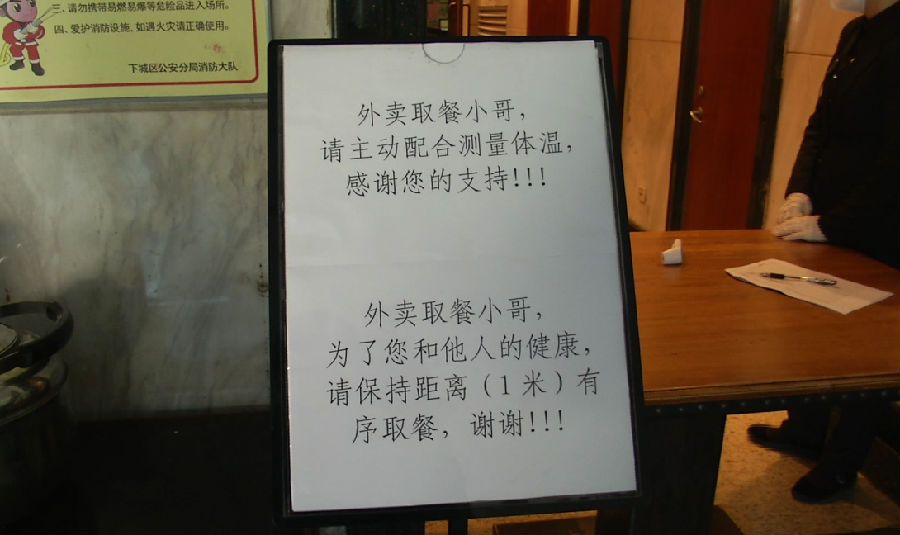 三、请勿携带易燃易爆等危险品进入场所。
四、爱护消防设施，如遇火灾请正确使用。
下城区公安分局消防大队
外卖取餐小哥，
请主动配合测量体温，
感谢您的支持!!!
外卖取餐小哥，
为了您和他人的健康，
请保持距离（1米）有
序取餐，谢谢!!!